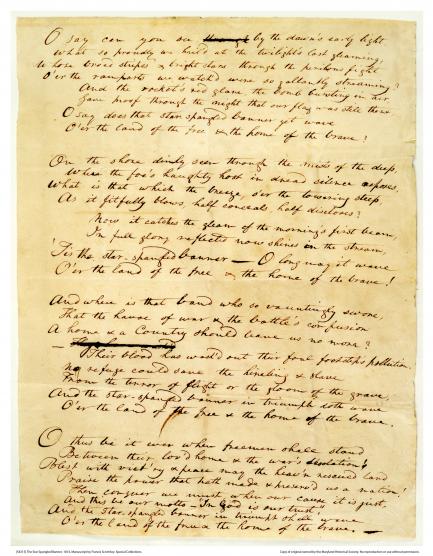 O say can you see ~~through~~ by the dawn's early light
What so proudly we hail'd at the twilight's last gleaming,
Whose broad stripes & bright stars through the perilous fight
O'er the ramparts we watch'd, were so gallantly streaming?
And the rocket's red glare, the bomb bursting in air,
Gave proof through the night that our flag was still there
O say does that star-spangled banner yet wave
O'er the land of the free & the home of the brave?
On the shore dimly seen through the mists of the deep,
Where the foe's haughty host in dread silence reposes,
What is that which the breeze, o'er the towering steep,
As it fitfully blows, half conceals, half discloses?
Now it catches the gleam of the morning's first beam,
In full glory reflected now shines in the stream,
'Tis the star-spangled banner — O long may it wave
O'er the land of the free & the home of the brave!
And where is that band who so vauntingly swore,
That the havoc of war & the battle's confusion
A home & a Country should leave us no more?
Their blood has wash'd out their foul footstep's pollution.
No refuge could save the hireling & slave
From the terror of flight or the gloom of the grave,
And the star-spangled banner in triumph doth wave
O'er the land of the free & the home of the brave.
O thus be it ever when freemen shall stand
Between their lov'd home & the war's desolation!
Blest with vict'ry & peace may the heav'n rescued land
Praise the power that hath made & preserv'd us a nation!
Then conquer we must, when our cause it is just,
And this be our motto - "In God is our trust,"
And the star-spangled banner in triumph shall wave
O'er the land of the free & the home of the brave. —